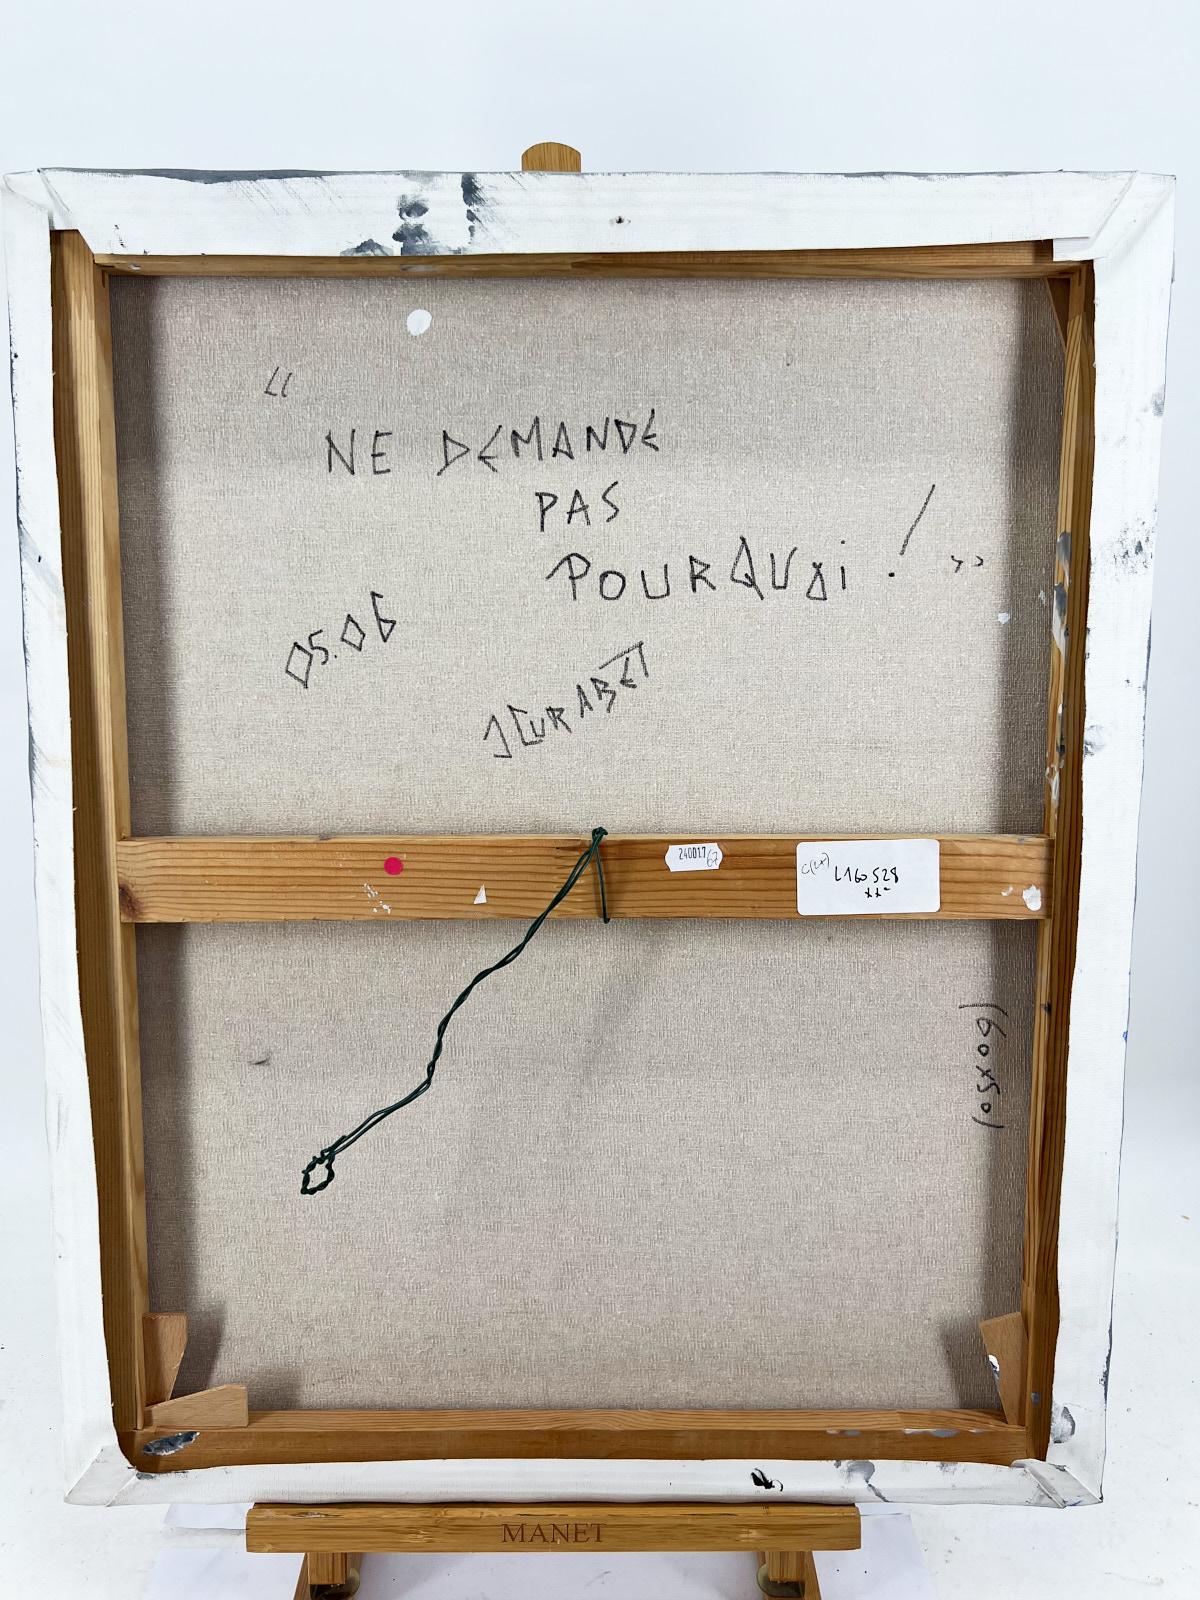 “
NE DEMANDE
PAS
POURQUOi ! ”
05.06
JCURABET
240017/67
L160528
(60x50)
MANET